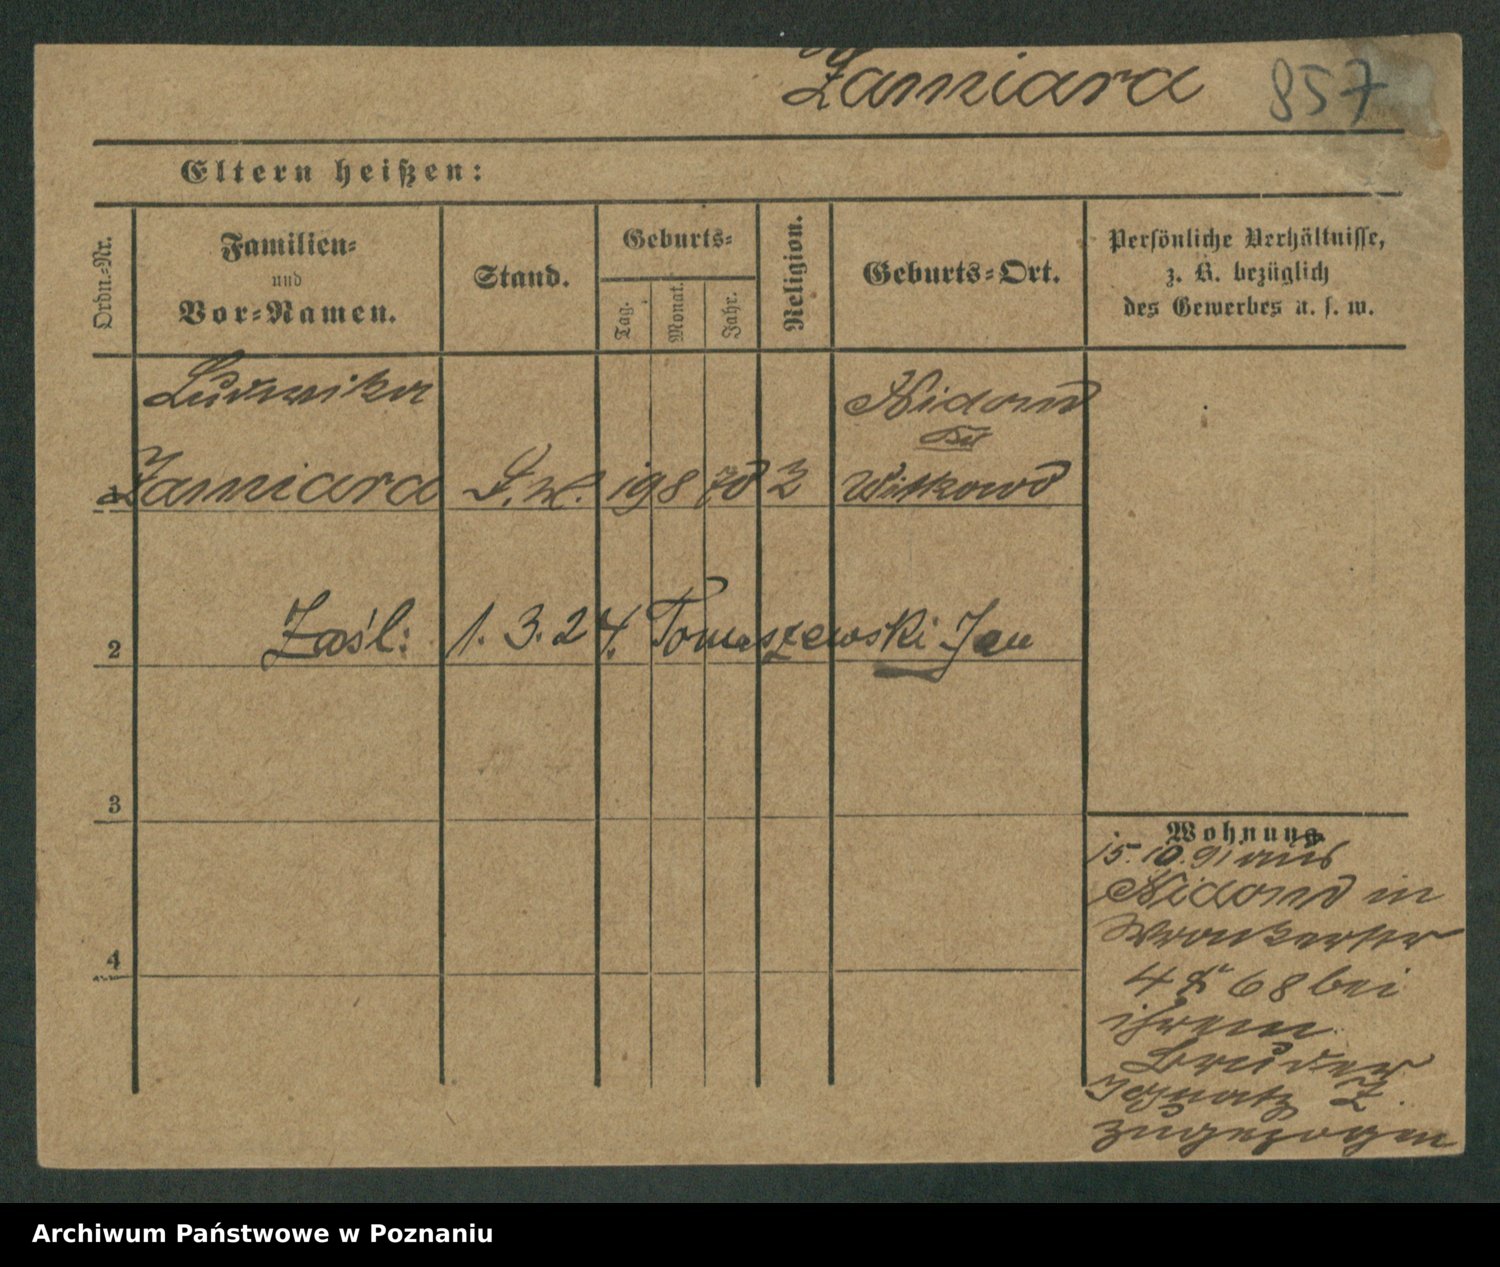 Zamiara 857
Eltern heißen:
Ordn.-Nr.
Familien-
und
Vor-Namen.
Stand.
Geburts-
Tag.
Monat.
Jahr.
Religion.
Geburts-Ort.
Persönliche Verhältnisse,
z. B. bezüglich
des Gewerbes u. s. w.
Ludwika
Zamiara 19 8 70 Witkowo
2 Zaśl: 1. 3. 24. Tomaszewski Jan
3
4
Wohnung
15. 10. 91 aus
in
Wronkerstr
4 68 bei
ihrem
Bruder
Ignatz Z.
zugezogen
Archiwum Państwowe w Poznaniu